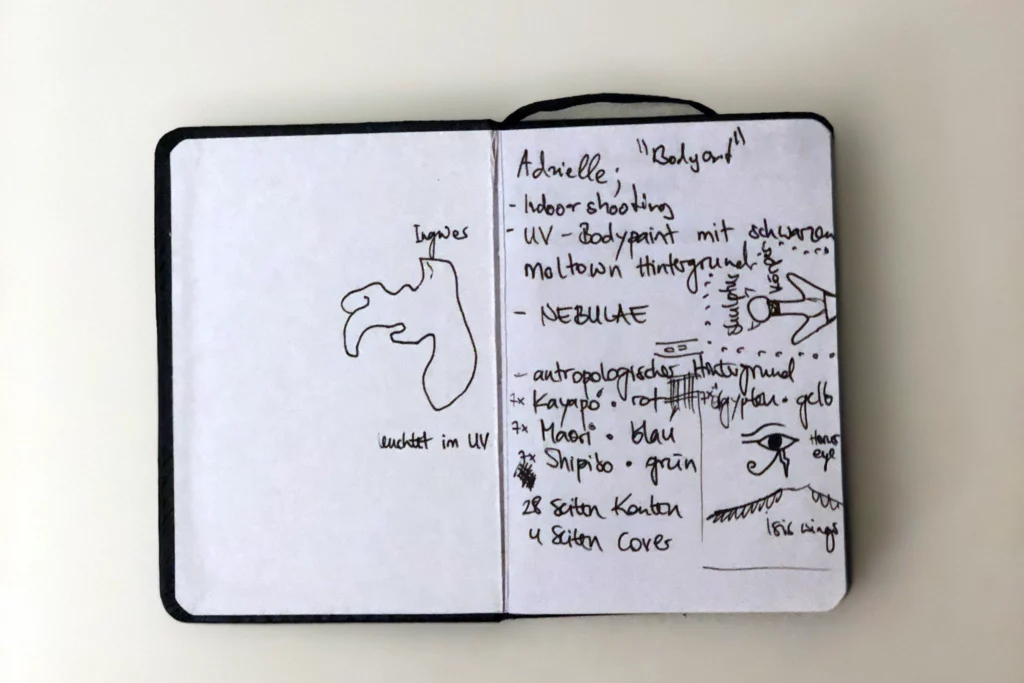 Ingwer
leuchtet im UV
"Bodyart"
Adrielle;
- Indoor shooting
- UV - Bodypaint mit schwarzen
moltown Hintergrund
Skulptur
Körper
- NEBULAE
- antropologischer Hintergrund
7x Kayapó • rot
7x Ägypten • gelb
7x Maori • blau
7x Shipibo • grün
Horus
eye
28 Seiten Konten
4 Seiten Cover
Isis wings